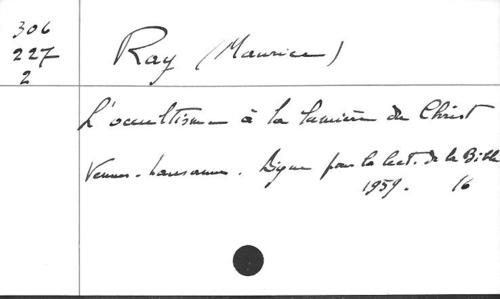 306
227
2
Ray (Maurice)
L'occultisme à la lumière du Christ
Vennes-Lausanne. Ligue pour la lect. de la Bible
1959. 16